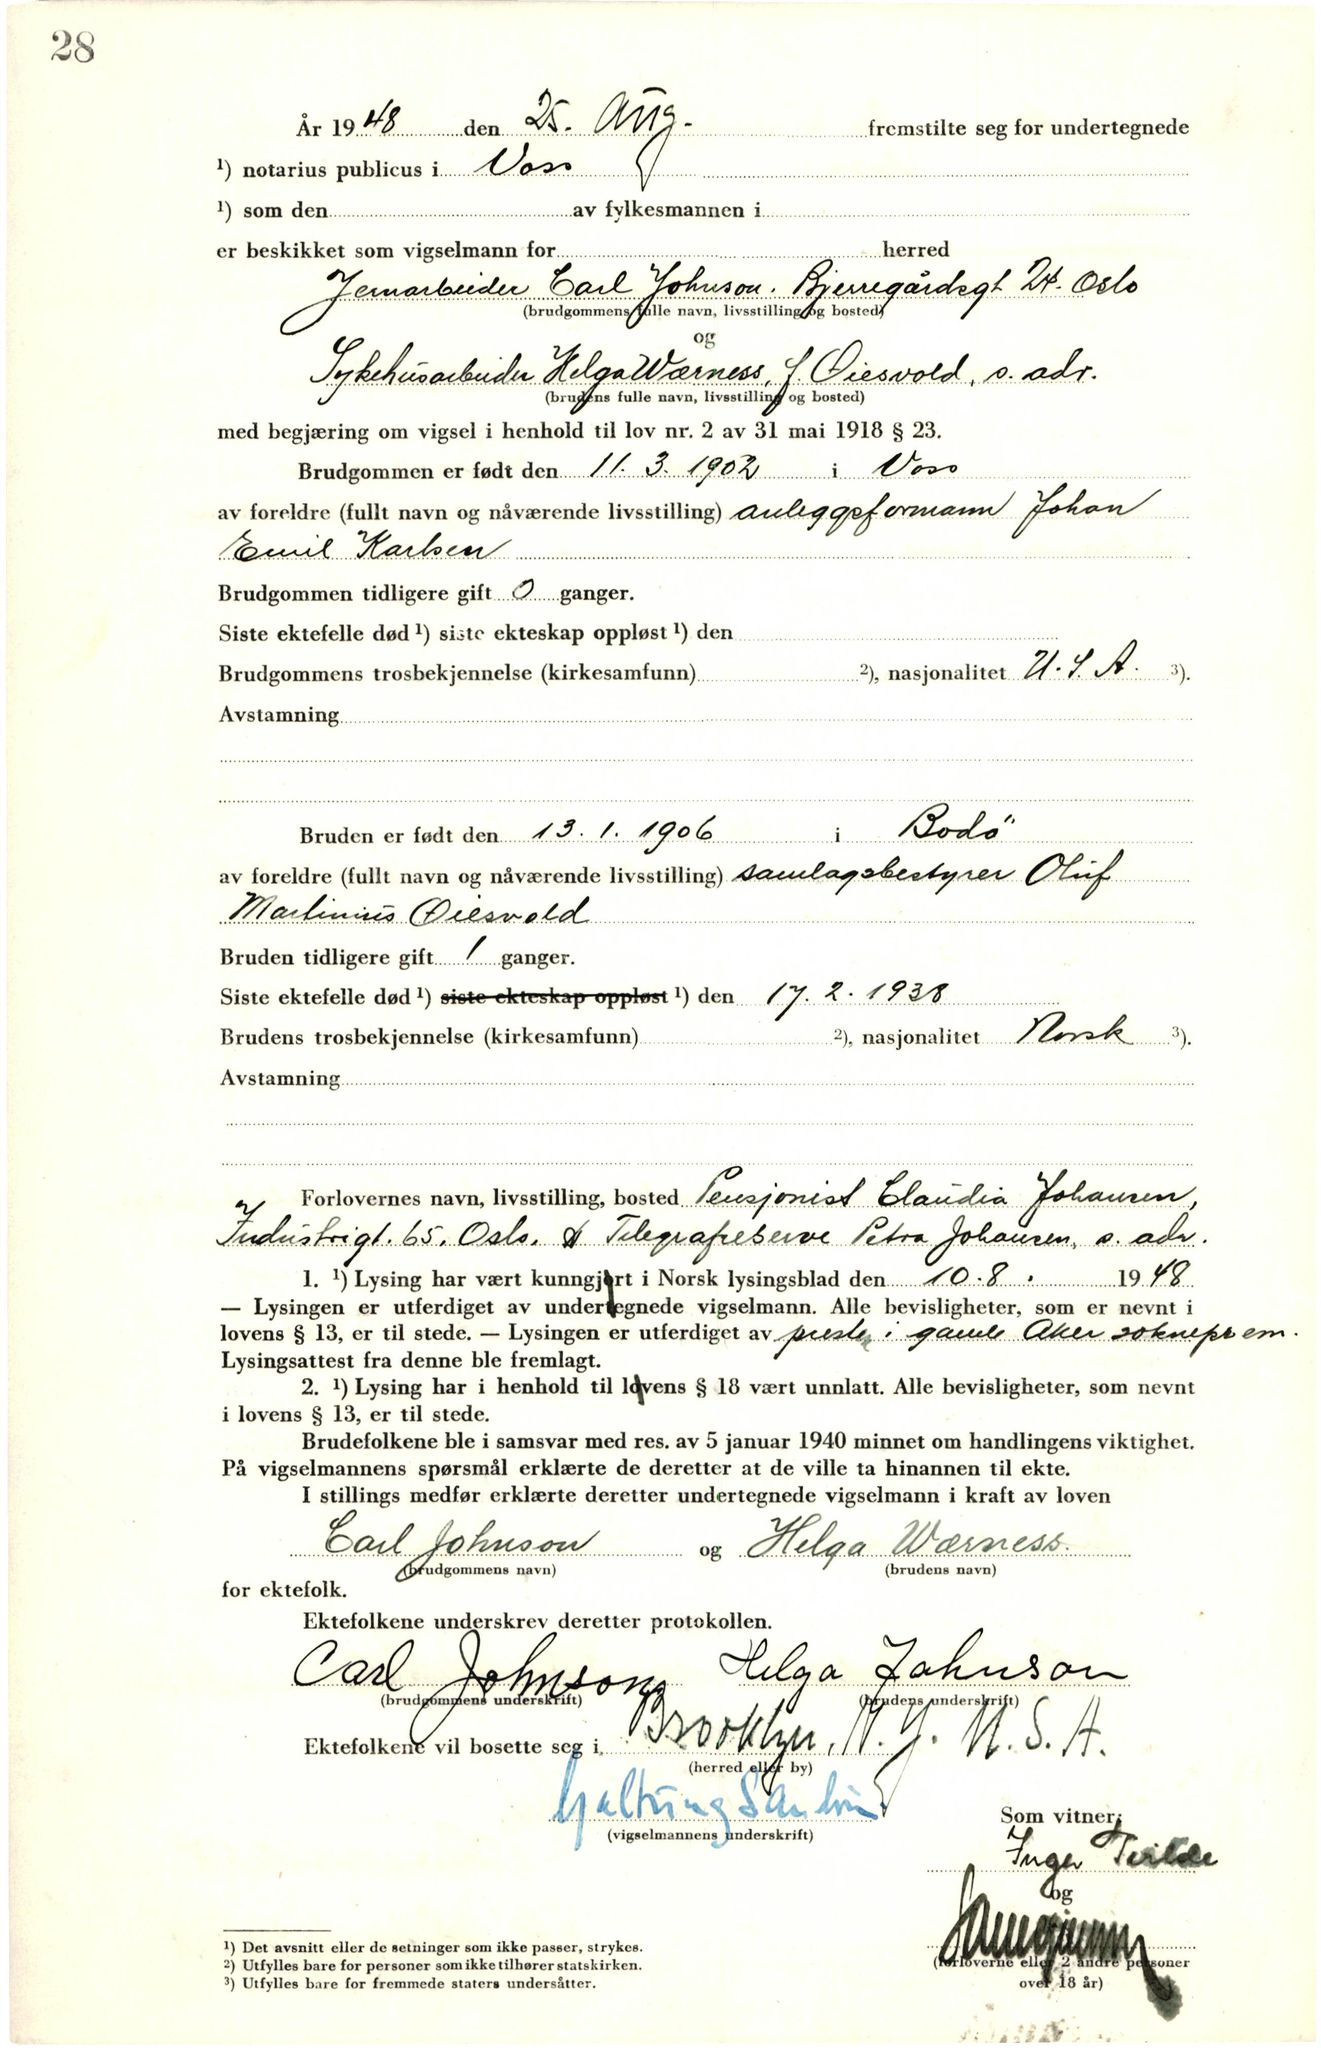 28
År 1948 den 25. Aug. fremstilte seg for undertegnede
¹) notarius publicus i Voss
¹) som den av fylkesmannen i
er beskikket som vigselmann for herred
Jernarbeider Carl Johnson. Bjerregårdsgt 24. Oslo
(brudgommens fulle navn, livsstilling og bosted)
og
Sykehusarbeider Helga Wærness, f. Øiesvold, s. adr.
(brudens fulle navn, livsstilling og bosted)
med begjæring om vigsel i henhold til lov nr. 2 av 31 mai 1918 § 23.
Brudgommen er født den 11. 3. 1902 i Voss
av foreldre (fullt navn og nåværende livsstilling) anleggsformann Johan
Emil Karlsen
Brudgommen tidligere gift 0 ganger.
Siste ektefelle død ¹) siste ekteskap oppløst ¹) den
Brudgommens trosbekjennelse (kirkesamfunn) ²), nasjonalitet U. S. A. ³).
Avstamning
Bruden er født den 13. 1. 1906 i Bodö
av foreldre (fullt navn og nåværende livsstilling) samlagsbestyrer Oluf
Martinius Øiesvold
Bruden tidligere gift 1 ganger.
Siste ektefelle død ¹) siste ekteskap oppløst ¹) den 17. 2. 1938
Brudens trosbekjennelse (kirkesamfunn) ²), nasjonalitet Norsk ³).
Avstamning
Forlovernes navn, livsstilling, bosted Pensjonist Claudia Johansen,
Industrigt. 65. Oslo. Telegrafreserve Petra Johansen, s. adr.
1. ¹) Lysing har vært kunngjort i Norsk lysingsblad den 10. 8. 1948
— Lysingen er utferdiget av undertegnede vigselmann. Alle bevisligheter, som er nevnt i
lovens § 13, er til stede. — Lysingen er utferdiget av presten i gamle Aker sokneprem.
Lysingsattest fra denne ble fremlagt.
2. ¹) Lysing har i henhold til lovens § 18 vært unnlatt. Alle bevisligheter, som nevnt
i lovens § 13, er til stede.
Brudefolkene ble i samsvar med res. av 5 januar 1940 minnet om handlingens viktighet.
På vigselmannens spørsmål erklærte de deretter at de ville ta hinannen til ekte.
I stillings medfør erklærte deretter undertegnede vigselmann i kraft av loven
Carl Johnson og Helga Wærness.
(brudgommens navn) (brudens navn)
for ektefolk.
Ektefolkene underskrev deretter protokollen.
Carl Johnson Helga Johnson
(brudgommens underskrift) (brudens underskrift)
Ektefolkene vil bosette seg i Brooklyn, N. Y. U. S. A.
(herred eller by)
(vigselmannens underskrift)
Som vitner:
Inger
og
(forloverne eller 2 andre personer
over 18 år)
¹) Det avsnitt eller de setninger som ikke passer, strykes.
²) Utfylles bare for personer som ikke tilhører statskirken.
³) Utfylles bare for fremmede staters undersåtter.